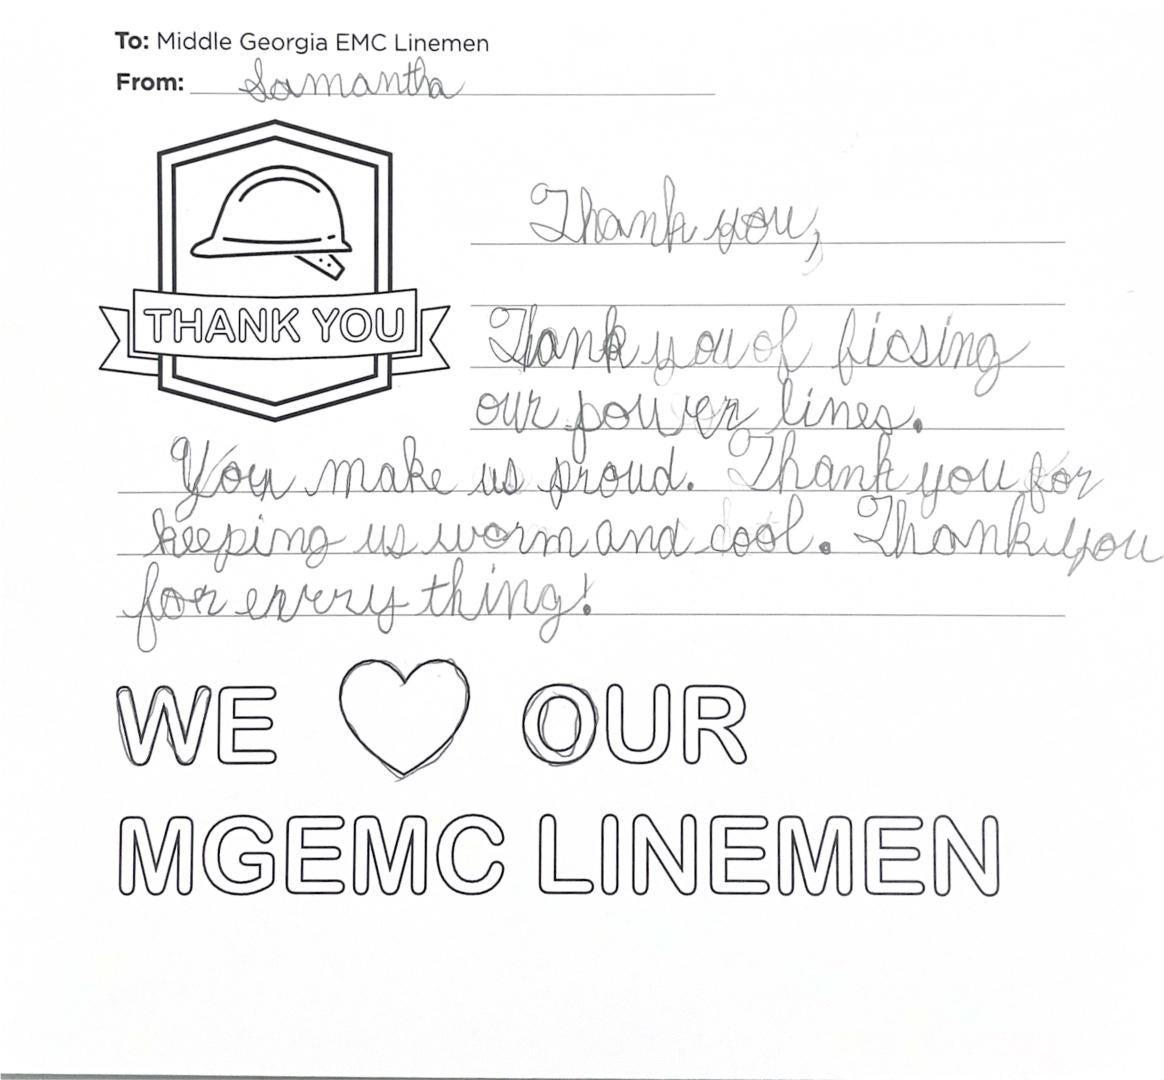 To: Middle Georgia EMC Linemen
From: Samantha
THANK YOU
Thank you,
Thank you of ficsing
our power lines.
You make us proud. Thank you for
keeping us worm and cool. Thank you
for every thing!
WE OUR
MGEMC LINEMEN